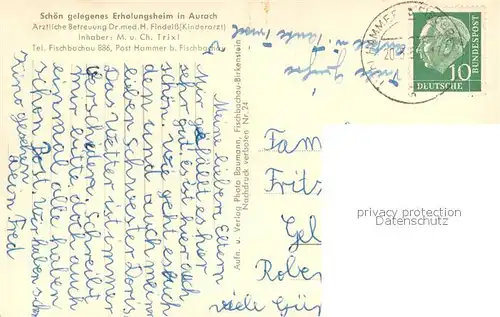 Schön gelegenes Erholungsheim in Aurach
Ärztliche Betreuung Dr. med. H. Findeiß (Kinderarzt)
Inhaber: M. u. Ch. Trixl
Tel. Fischbachau 886, Post Hammer b. Fischbachau
Meine lieben Eltern
mir gefällt es hier
sehr gut. Es ist hier auch
schön. Wie geht es euch
den und auch meiner
lieben Schwester Doris.
Das Wetter ist immer
Verschieden. Schreibt
mir bitte doch auch
einmal alle haben
schon Post. Wir haben schon
Kino gesehen.
Aufn. u. Verlag Photo Baumann, Fischbachau-Birkenstein
Nachdruck verboten Nr. 24
HAMMER
10
DEUTSCHE
BUNDESPOST
Fam
Fritz
Gel
Rober
viele Grüs
privacy protection
Datenschutz